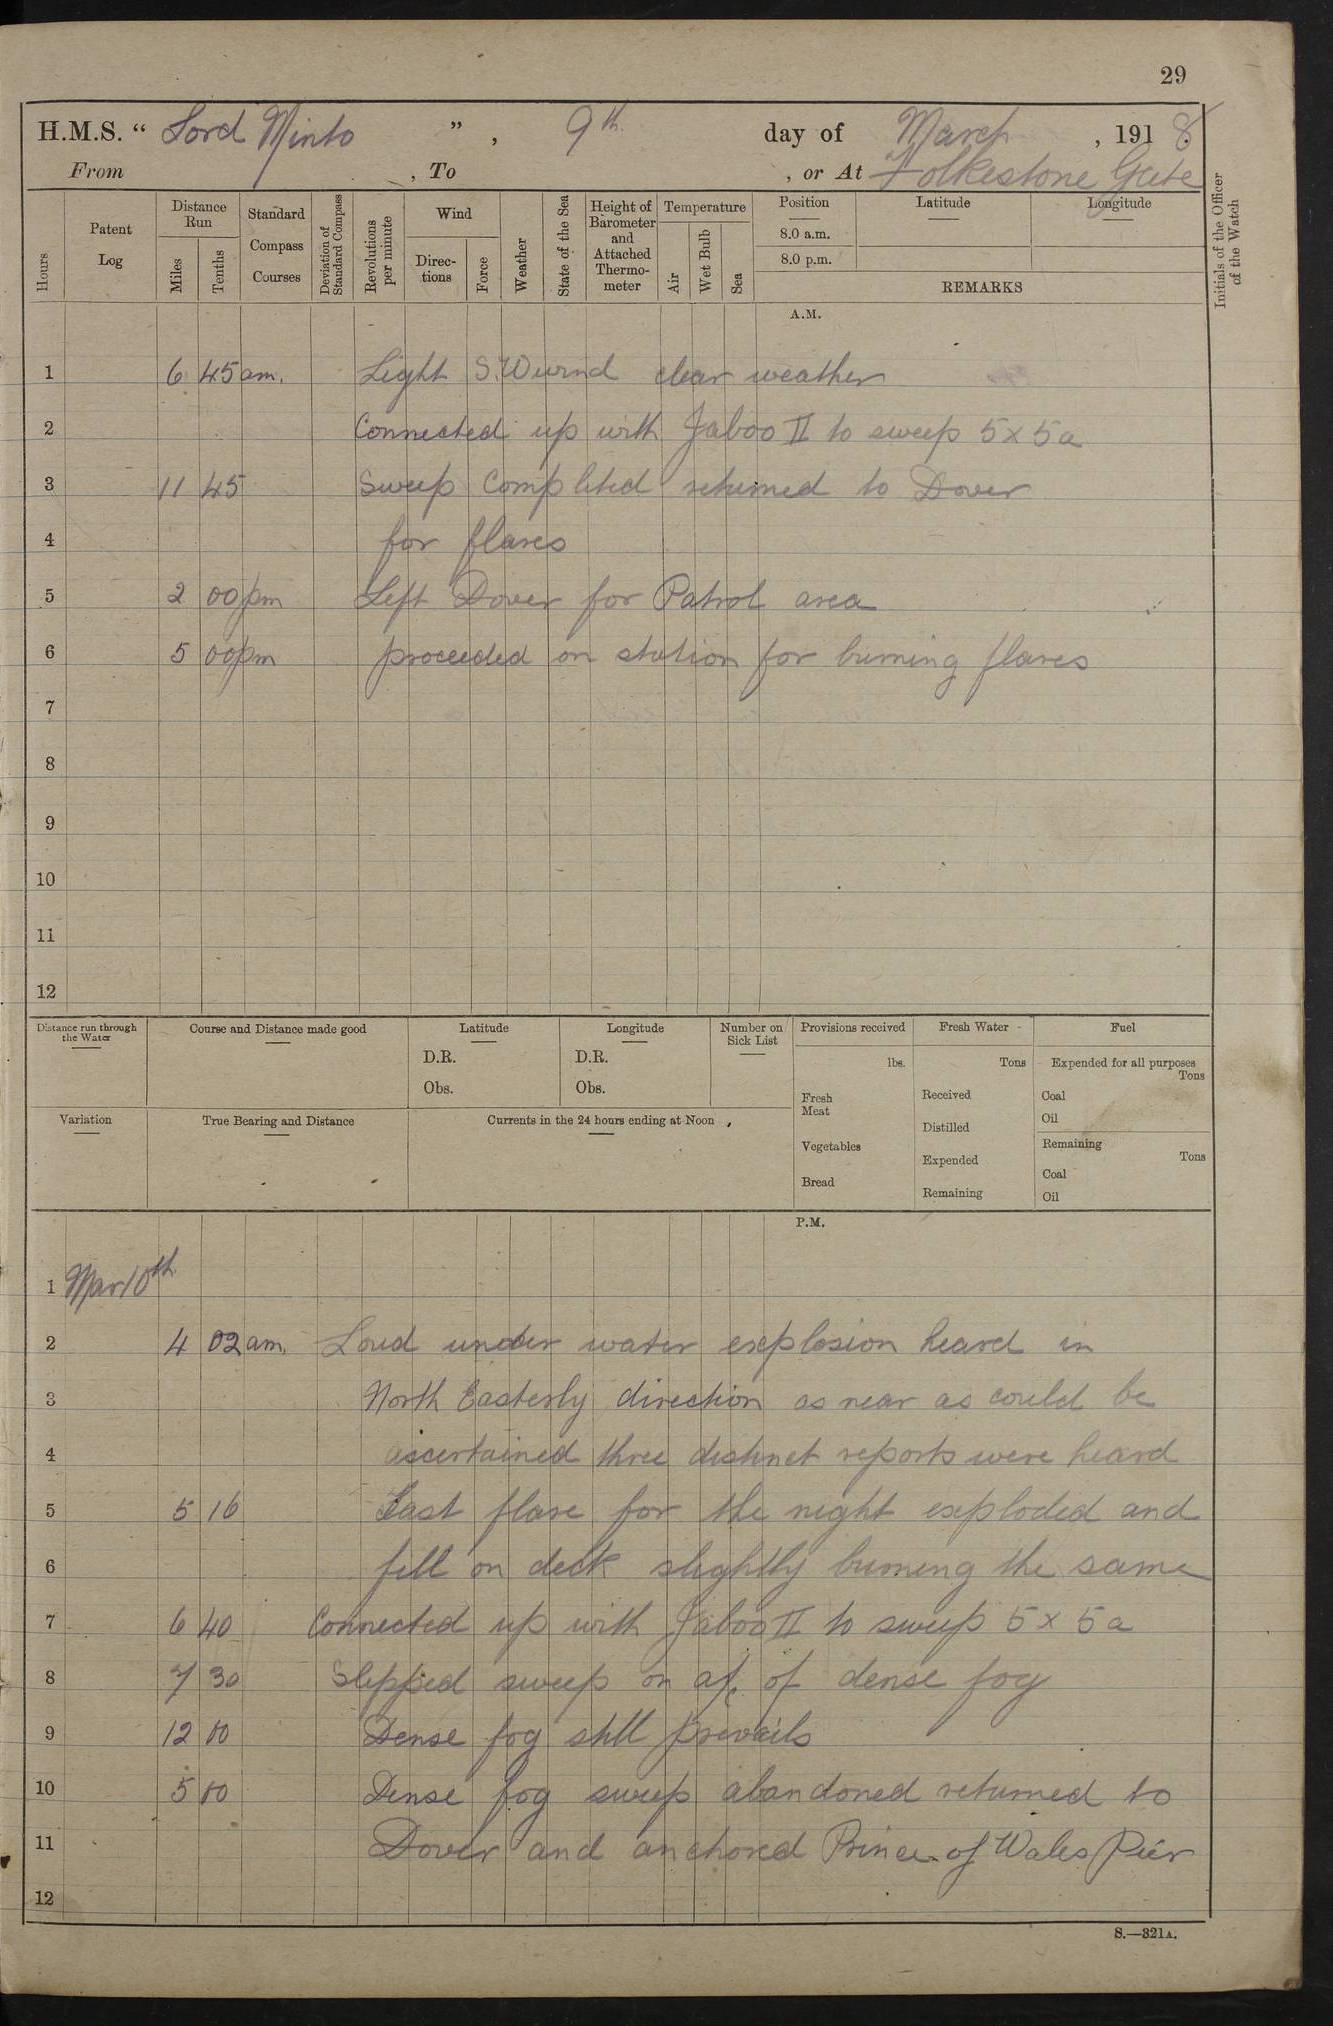 29
H.M.S. " Lord Minto " , 9th day of March , 1918.
From , To , or At Folkestone Gate
Hours
Patent Log
Distance Run
Miles
Tenths
Standard Compass Courses
Deviation of Standard Compass
Revolutions per minute
Wind
Direc-tions
Force
Weather
State of the Sea
Height of Barometer and Attached Thermo-meter
Temperature
Air
Wet Bulb
Sea
Position
8.0 a.m.
8.0 p.m.
Latitude
Longitude
REMARKS
Initials of the Officer of the Watch
A.M.
1 6 45am. Light S.W wind clear weather
2 Connected up with Jaboo II to sweep 5 x 5a
3 11 45 Sweep Completed returned to Dover
4 for flares
5 2 00pm Left Dover for Patrol area
6 5 00pm proceeded on station for burning flares
7
8
9
10
11
12
Distance run through the Water
Course and Distance made good
Latitude
D.R.
Obs.
Longitude
D.R.
Obs.
Number on Sick List
Provisions received
lbs.
Fresh Meat
Vegetables
Bread
Fresh Water
Tons
Received
Distilled
Expended
Remaining
Fuel
Expended for all purposes
Tons
Coal
Oil
Remaining
Tons
Coal
Oil
Variation
True Bearing and Distance
Currents in the 24 hours ending at Noon
P.M.
1 Mar 10th
2 4 02am. Loud under water explosion heard in
3 North Easterly direction as near as could be
4 ascertained three distinct reports were heard
5 5 16 Last flare for the night exploded and
6 fell on deck slightly burning the same
7 6 40 Connected up with Jaboo II to sweep 5 x 5a
8 7 30 Slipped sweep on a/c of dense fog
9 12 00 Dense fog still prevails
10 5 00 Dense fog sweep abandoned returned to
11 Dover and anchored Prince of Wales Pier
12
S.—321A.